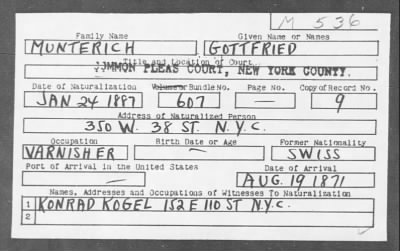 M 536
Family Name Given Name or Names
MUNTERICH GOTTFRIED
Title and Location of Court
COMMON PLEAS COURT, NEW YORK COUNTY.
Date of Naturalization Volume or Bundle No. Page No. Copy of Record No.
JAN 24 1887 607 — 9
Address of Naturalized Person
350 W. 38 ST. N.Y.C.
Occupation Birth Date or Age Former Nationality
VARNISHER — SWISS
Port of Arrival in the United States Date of Arrival
— AUG. 19 1871
Names, Addresses and Occupations of Witnesses To Naturalization
1 KONRAD KOGEL 152 E 110 ST N.Y.C.
2